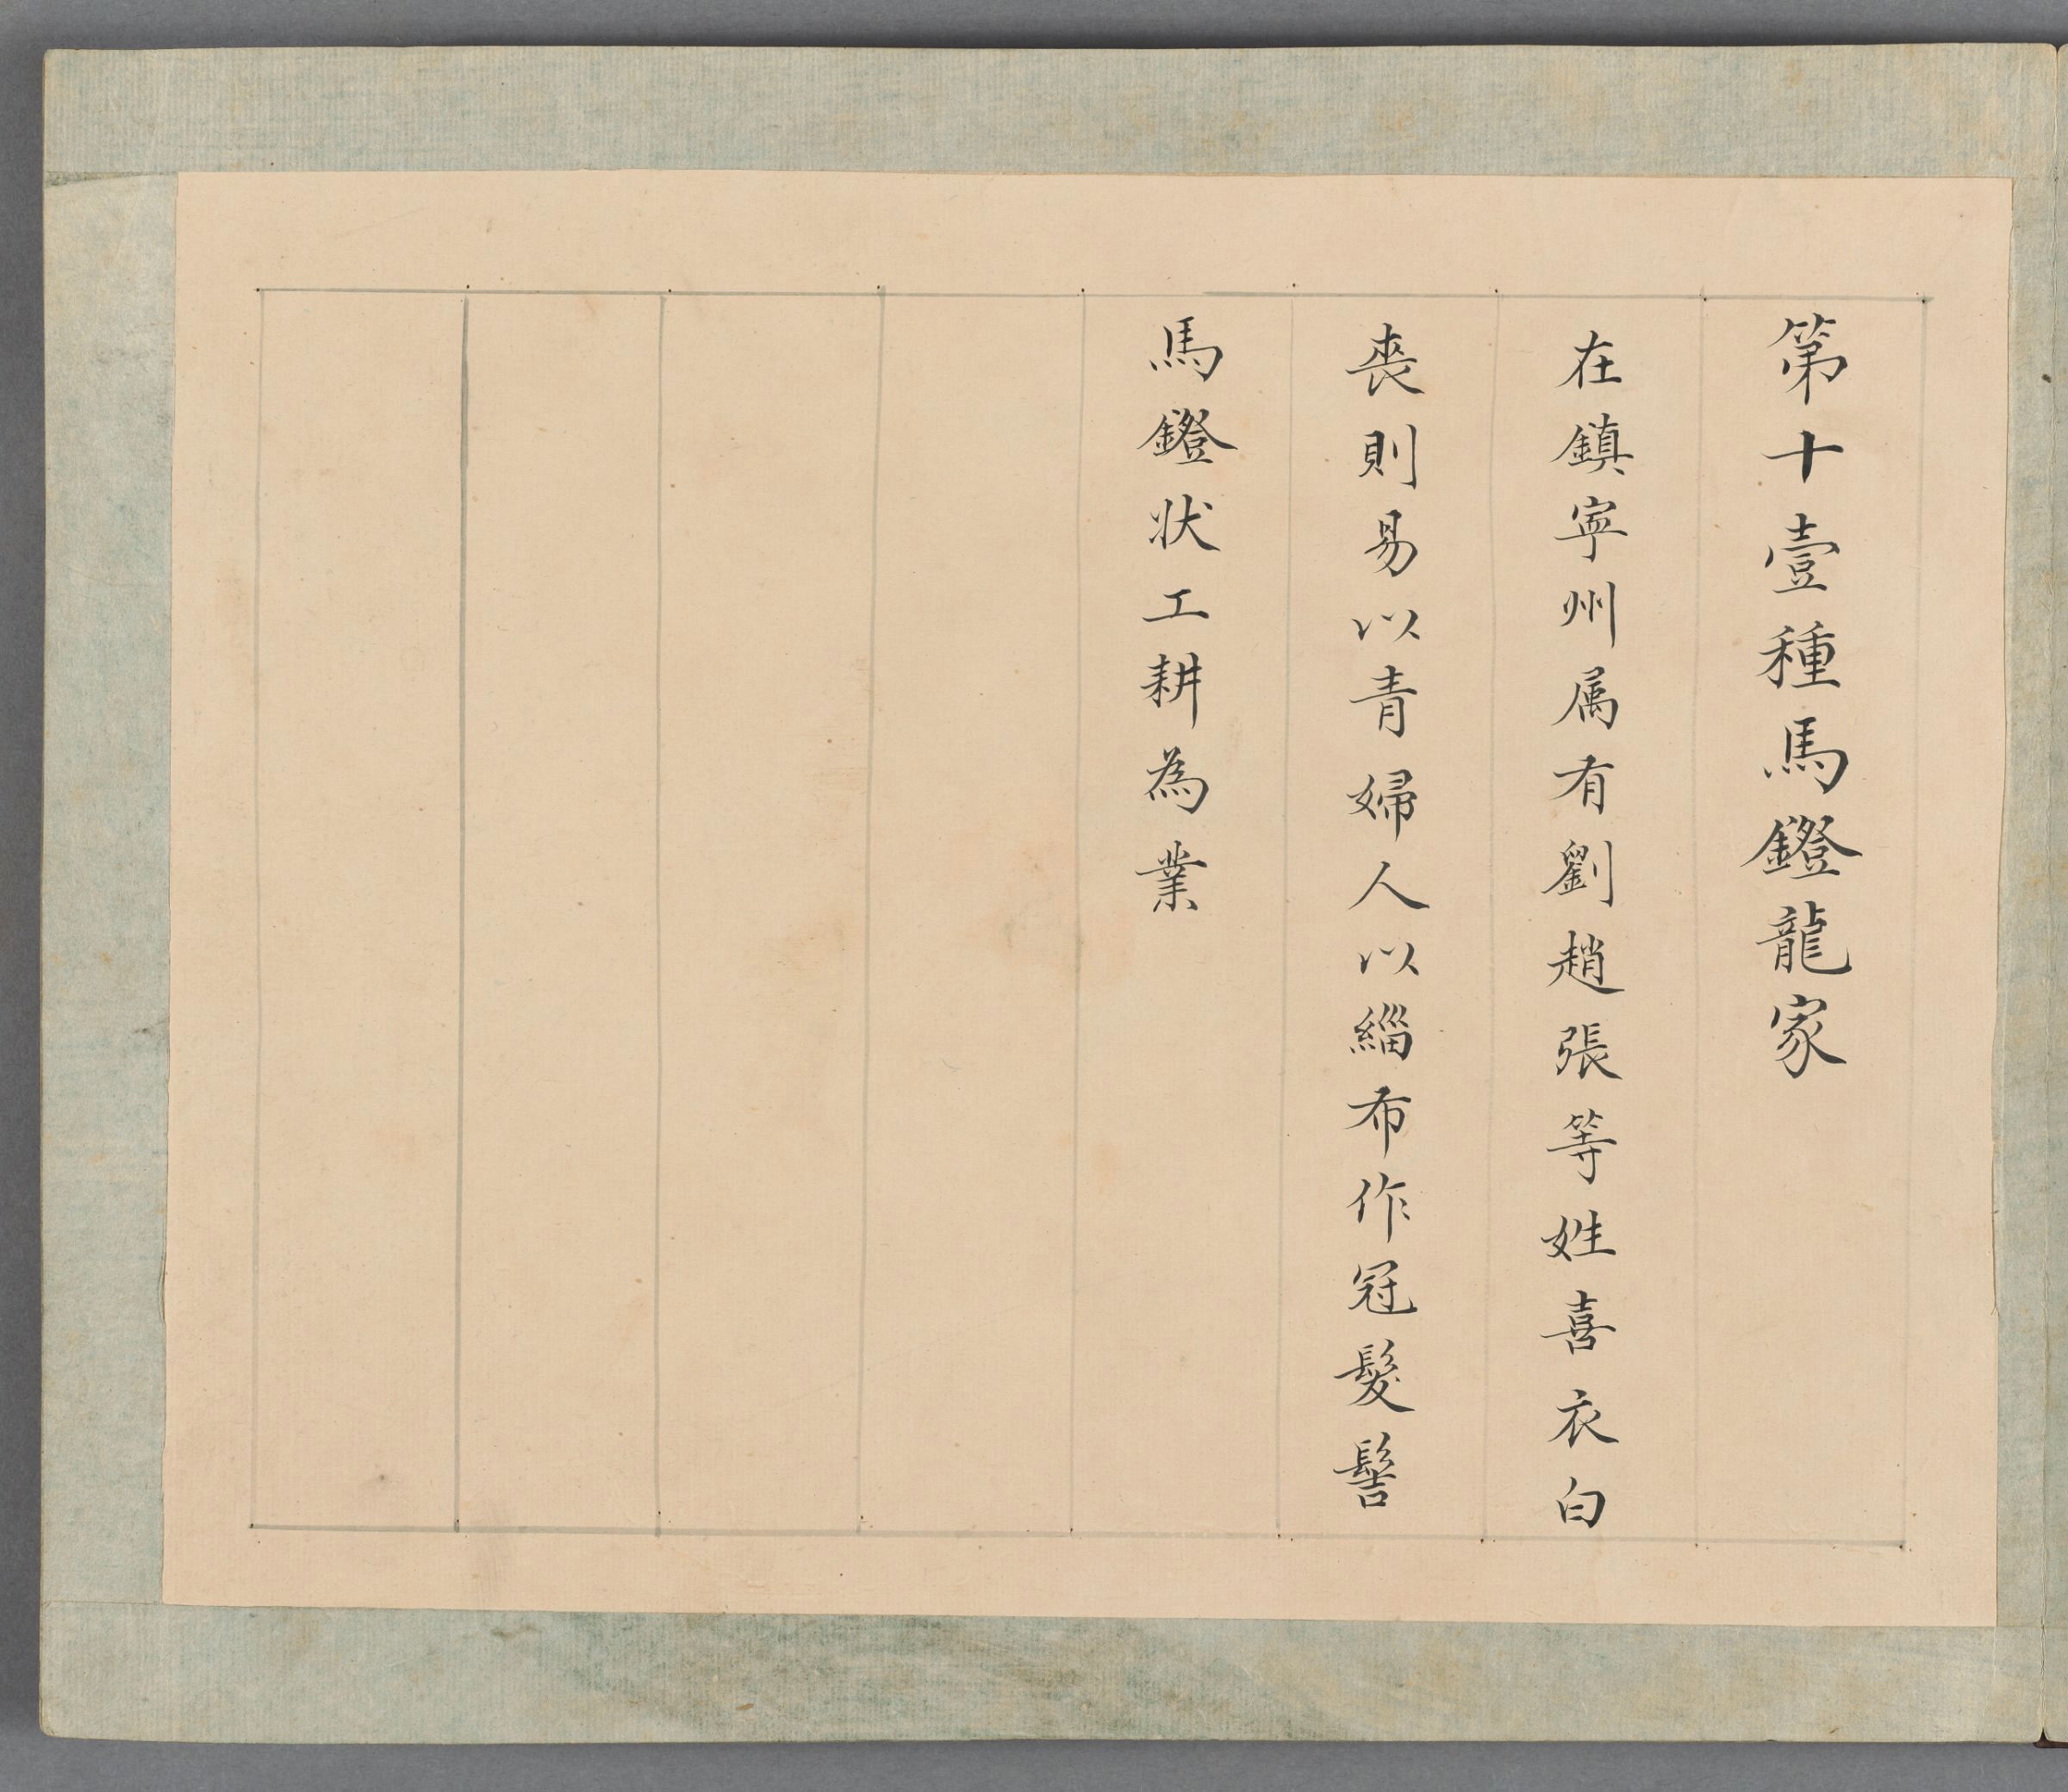 第十壹種馬鐙龍家
在鎮寧州属有劉趙張等姓喜衣白
喪則易以青婦人以緇布作冠髮髻
馬鐙状工耕為業